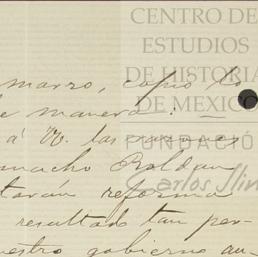 CENTRO DE
ESTUDIOS
DE HISTORIA
DE MEXICO
FUNDACIÓ
Carlos Slim
marzo, como lo
de manera:
á V. las
macho Roldan
tarán reforma
resultado tan per-
uestro gobierno au-